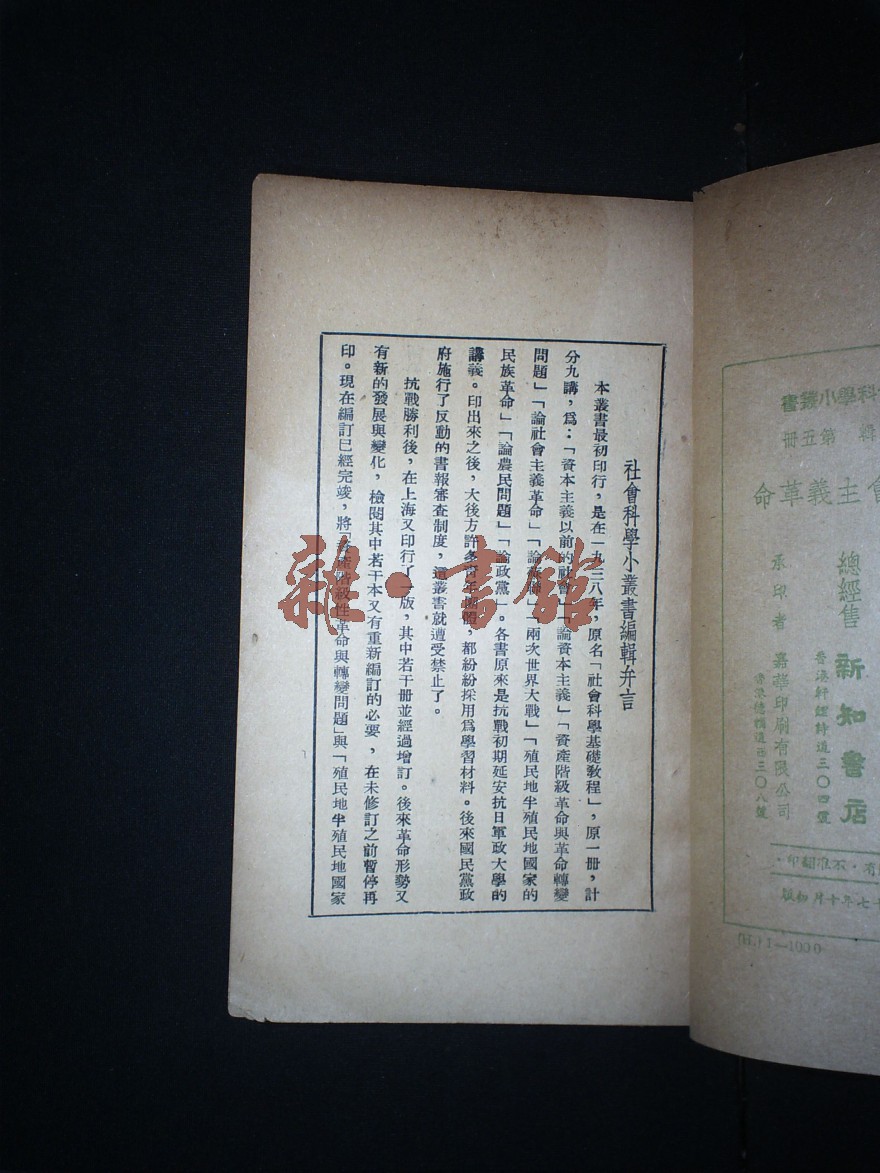 社會科學小叢書編輯弁言
本叢書最初印行，是在一九三八年，原名「社會科學基礎教程」，原一冊，計
分九講，爲：「資本主義以前的社會」「論資本主義」「資產階級革命與革命轉變
問題」「論社會主義革命」「論蘇聯」「兩次世界大戰」「殖民地半殖民地國家的
民族革命」「論農民問題」「論政黨」。各書原來是抗戰初期延安抗日軍政大學的
講義。印出來之後，大後方許多青年團體，都紛紛採用爲學習材料。後來國民黨政
府施行了反動的書報審査制度，這叢書就遭受禁止了。
抗戰勝利後，在上海又印行了一版，其中若干册並經過增訂。後來革命形勢又
有新的發展與變化，檢閱其中若干本又有重新編訂的必要，在未修訂之前暫停再
印。現在編訂已經完竣，將「資產階級性革命與轉變問題」與「殖民地半殖民地國家
科學小叢書
輯 第五冊
會主義革命
總經售 新知書店
香港軒鯉詩道三〇四號
承印者 嘉華印刷有限公司
香港德輔道西三〇八號
有·不准翻印·
七年十月初版
(H.) 1—1000
雜·書館